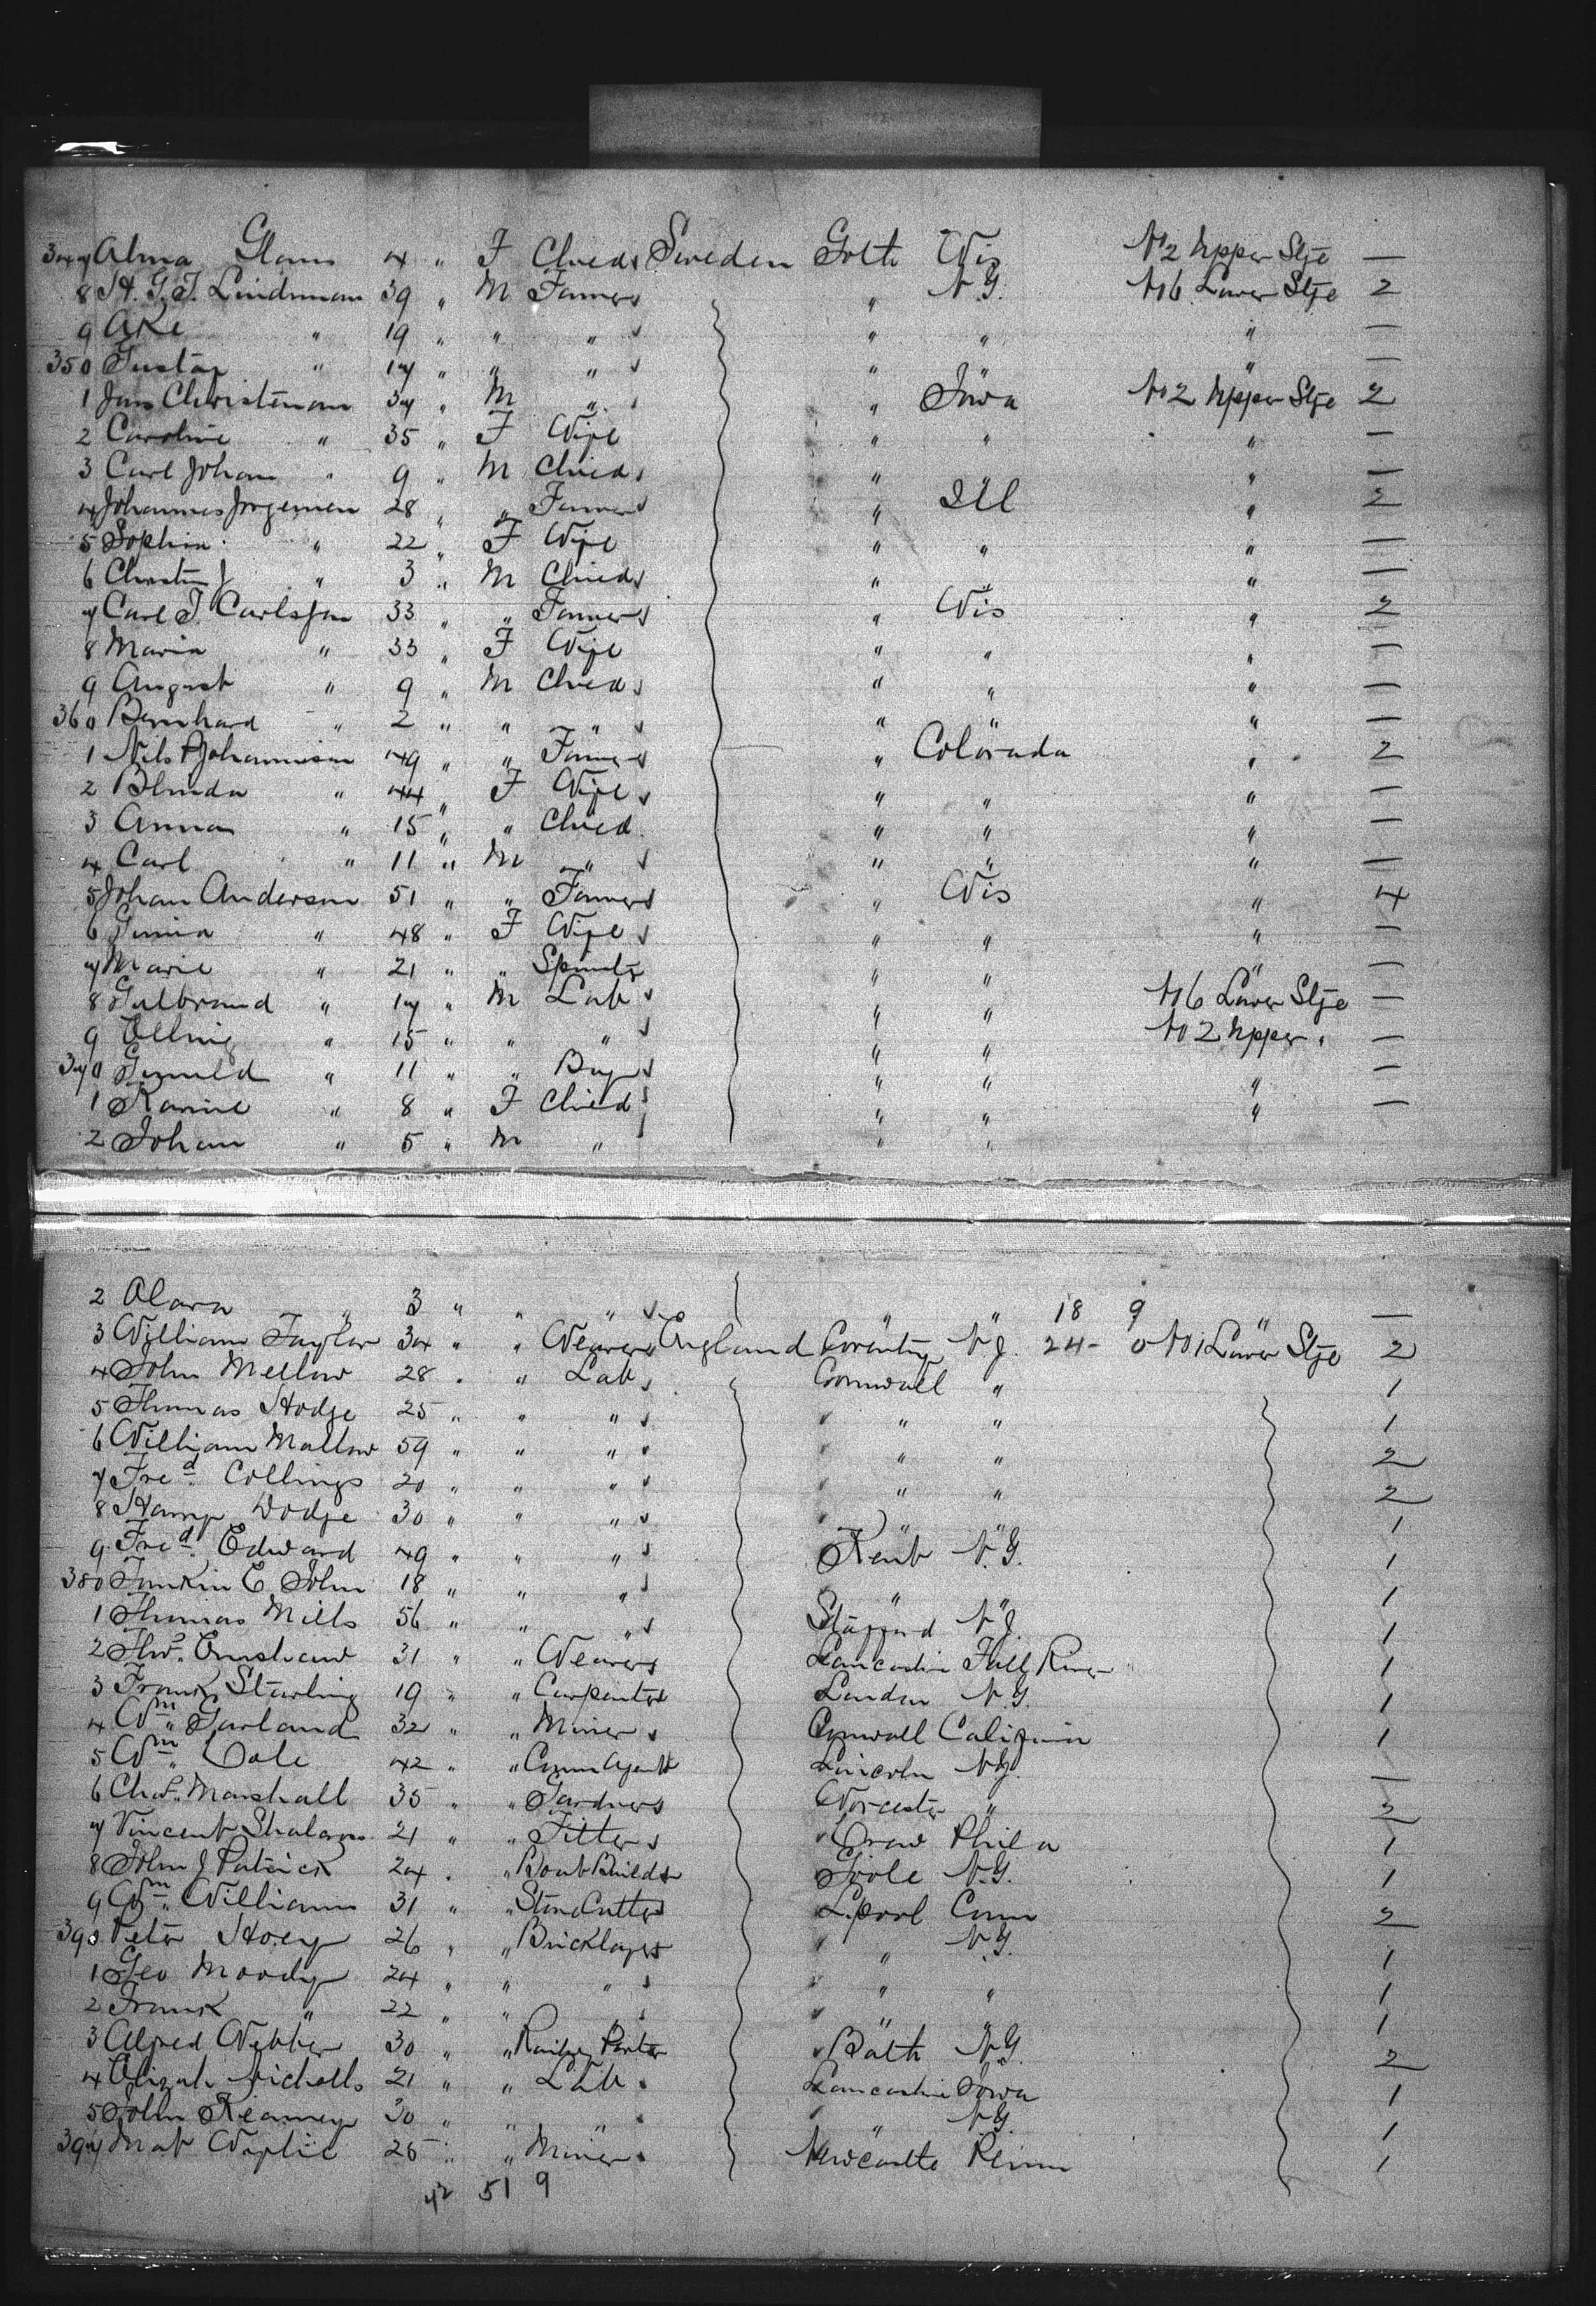 347 Alma Glans 4 " F Chied Sweden Goth Wis No 2 Upper Stje —
8 H. G. T. Lindman 39 " M Farmer " N.Y. No 6 Lower Stje 2
9 Ake " 19 " " " " " " —
350 Gustaf " 17 " " " " " " —
1 Jans Christenson 37 " M " " Iowa No 2 Upper Stje 2
2 Caroline " 35 " F Wife " " " —
3 Carl Johan " 9 " M Chied " " —
4 Johannes Jorgensen 28 " " Farmer " Ill " 2
5 Sophia " 22 " F Wife " " " —
6 Christin J " 3 " M Chied " " " —
7 Carl J. Carlsson 33 " " Farmer " Wis " 2
8 Maria " 33 " F Wife " " " —
9 August " 9 " M Chied " " " —
360 Bernhard " 2 " " " " " " —
1 Nils Johannison 49 " " Farmer " Colorada " 2
2 Blenda " 44 " F Wife " " " —
3 Anna " 15 " " Chied " " " —
4 Carl " 11 " M " " " " —
5 Johan Anderson 51 " " Farmer " Wis " 4
6 " 48 " F Wife " " " —
7 Marie " 21 " " Spinster " " " —
8 Gulbrand " 17 " M Lab " " No 6 Lower Stje —
9 Elling " 15 " " " " " No 2 Upper " —
370 " 11 " " Boy " " " —
1 Karine " 8 " F Chied " " " —
2 Johan " 5 " M " " "
2 Clara " 3 " " " " " 18 9 " —
3 William Taylor 34 " " Weaver England Coventry N.J. 24 - 0 No 1 Lower Stje 2
4 John Mellow 28 " " Lab Cornwall " 1
5 Thomas Hodge 25 " " " " " 1
6 William Mallow 59 " " " " " 2
7 Fred Collings 20 " " " " " 2
8 Dodge 30 " " " " " 1
9 Fred Edward 49 " " " Kent N.Y. 1
380 Jenkin E John 18 " " " " " 1
1 Thomas Mills 56 " " " Stafford N.J. 1
2 Thos. 31 " " Weaver Lancashire Fall River 1
3 Frank Starling 19 " " Carpenter London N.Y. 1
4 Wm. Garland 32 " " Miner Cornwall California 1
5 Wm. Cole 42 " " Comm Agent Lincoln N.Y. —
6 Chas. Marshall 35 " " Gardner Worcester " 2
7 Vincent 21 " " Fitter Phila 1
8 John J Patrick 24 " " Boat Builder Goole N.Y. 1
9 Wm. Williams 31 " " Stone Cutter L.pool Conn 2
390 Peter Hoey 26 " " Bricklayer " N.Y. 1
1 Geo Moody 24 " " " " " 1
2 Frank " 22 " " " " " 1
3 Alfred Webber 30 " " Railway Porter Bath N.Y. 2
4 Elizah Nicholls 21 " " Lab Lancashire Iowa 1
5 John Kearney 30 " " " " N.Y. 1
397 Mat 25 " " Miner Newcastle Penn 1
42 51 9